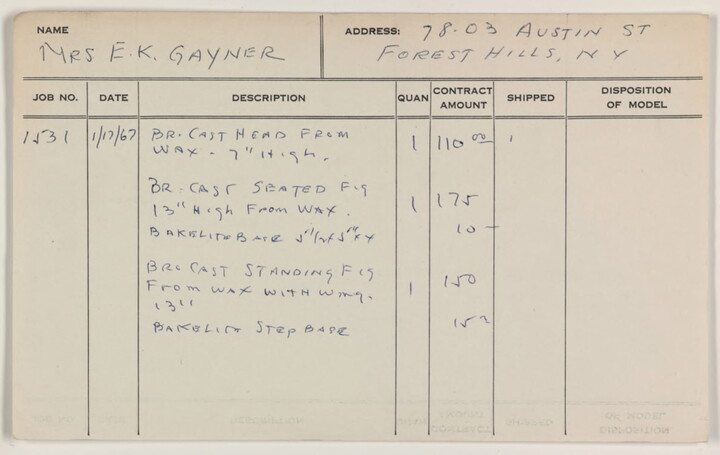 NAME
MRS E.K. GAYNER
ADDRESS: 78-03 AUSTIN ST
FOREST HILLS, NY
JOB NO. DATE DESCRIPTION QUAN CONTRACT AMOUNT SHIPPED DISPOSITION OF MODEL
1531 1/17/67 BR. CAST HEAD FROM
WAX - 7" HIGH. 1 110 00
BR. CAST SEATED FIG
13" HIGH FROM WAX. 1 175
BAKELITE BASE 10 —
BRC CAST STANDING FIG
FROM WAX WITH WING. 1 150
13"
BAKELITE STEP BASE 15